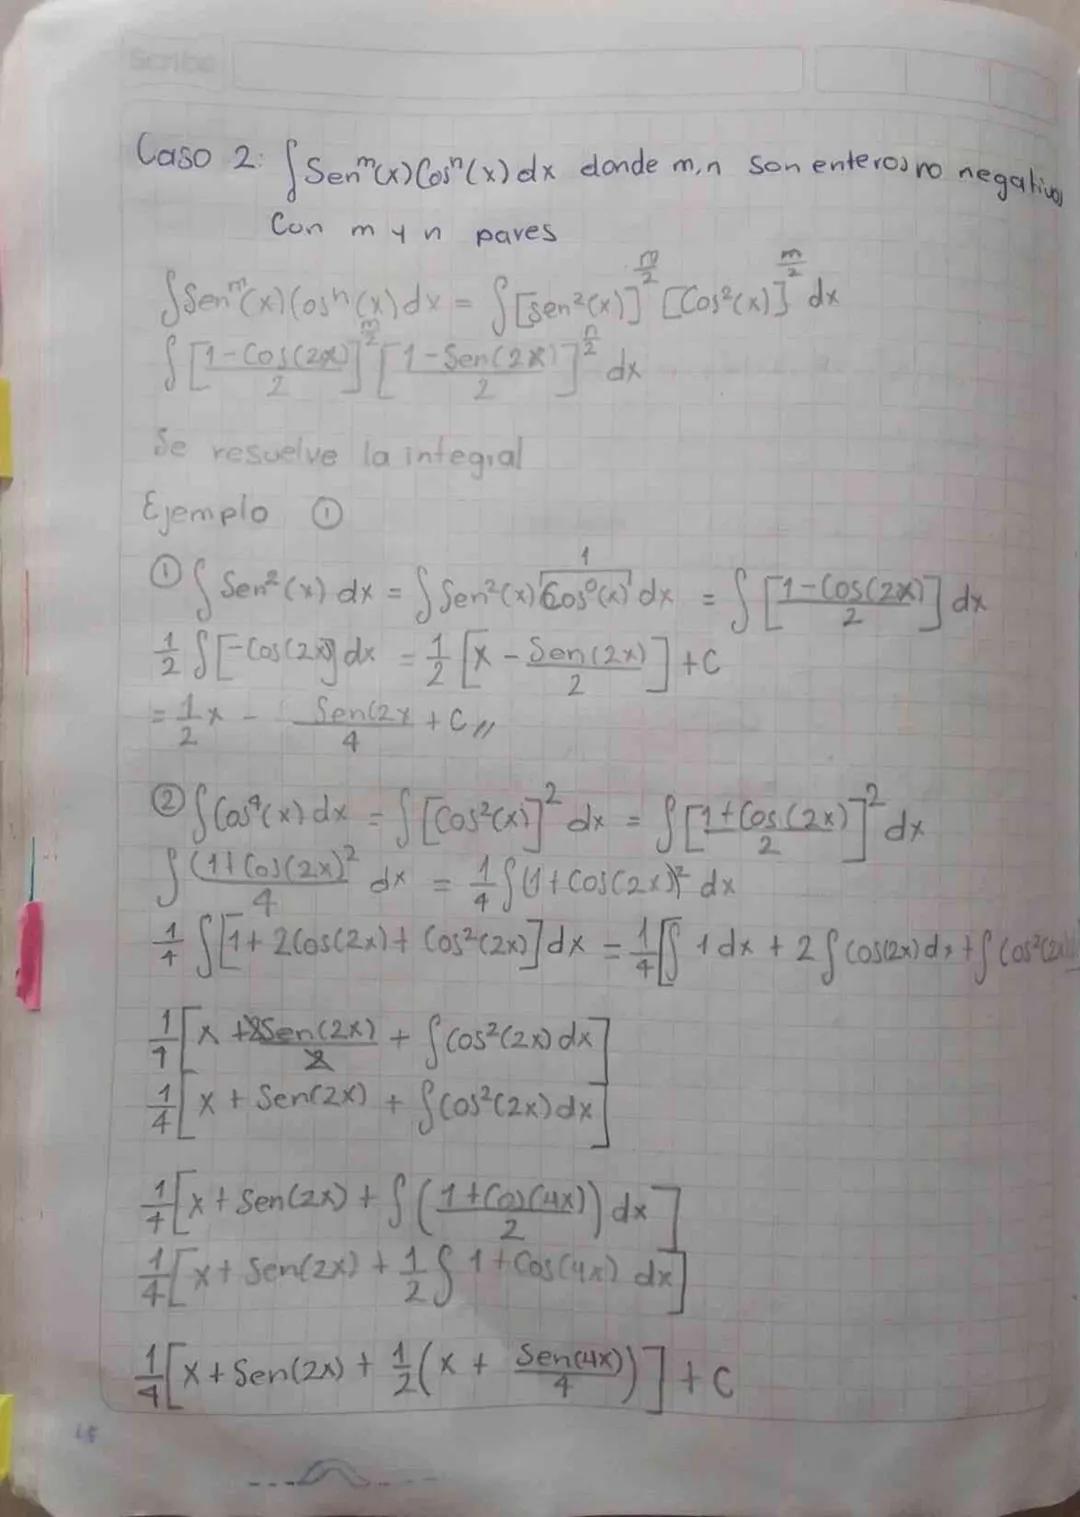 Scribe
Caso 2: ∫Senᵐ(x)Cosⁿ(x)dx donde m,n son enteros no negativos
Con m y n pares
∫Senᵐ(x)Cosⁿ(x)dx = ∫[sen²(x)]^(m/2) [Cos²(x)]^(m/2) dx
∫[(1-Cos(2x))/2]^(m/2) [(1-Sen(2x))/2]^(n/2) dx
Se resuelve la integral
Ejemplo ①
① ∫Sen²(x) dx = ∫Sen²(x) Cos⁰(x) 1 dx = ∫[(1-Cos(2x))/2] dx
1/2 ∫[-Cos(2x)] dx = 1/2 [x - Sen(2x)/2] + C
= 1/2 x - Sen(2x/4 + C //
② ∫Cos⁴(x) dx = ∫[Cos²(x)]² dx = ∫[(1+Cos(2x))/2]² dx
∫(1+Cos(2x)²/4 dx = 1/4 ∫(1+Cos(2x))² dx
1/4 ∫[1+2Cos(2x)+Cos²(2x)]dx = 1/4[∫1dx + 2∫cos(2x)dx + ∫Cos²(2x)
1/4[x + 2Sen(2x)/2 + ∫Cos²(2x)dx]
1/4[x + Sen(2x) + ∫cos²(2x)dx]
1/4[x + Sen(2x) + ∫((1+Cos(4x))/2) dx]
1/4[x + Sen(2x) + 1/2 ∫1+Cos(4x) dx]
1/4[x + Sen(2x) + 1/2(x + Sen(4x)/4)] + C